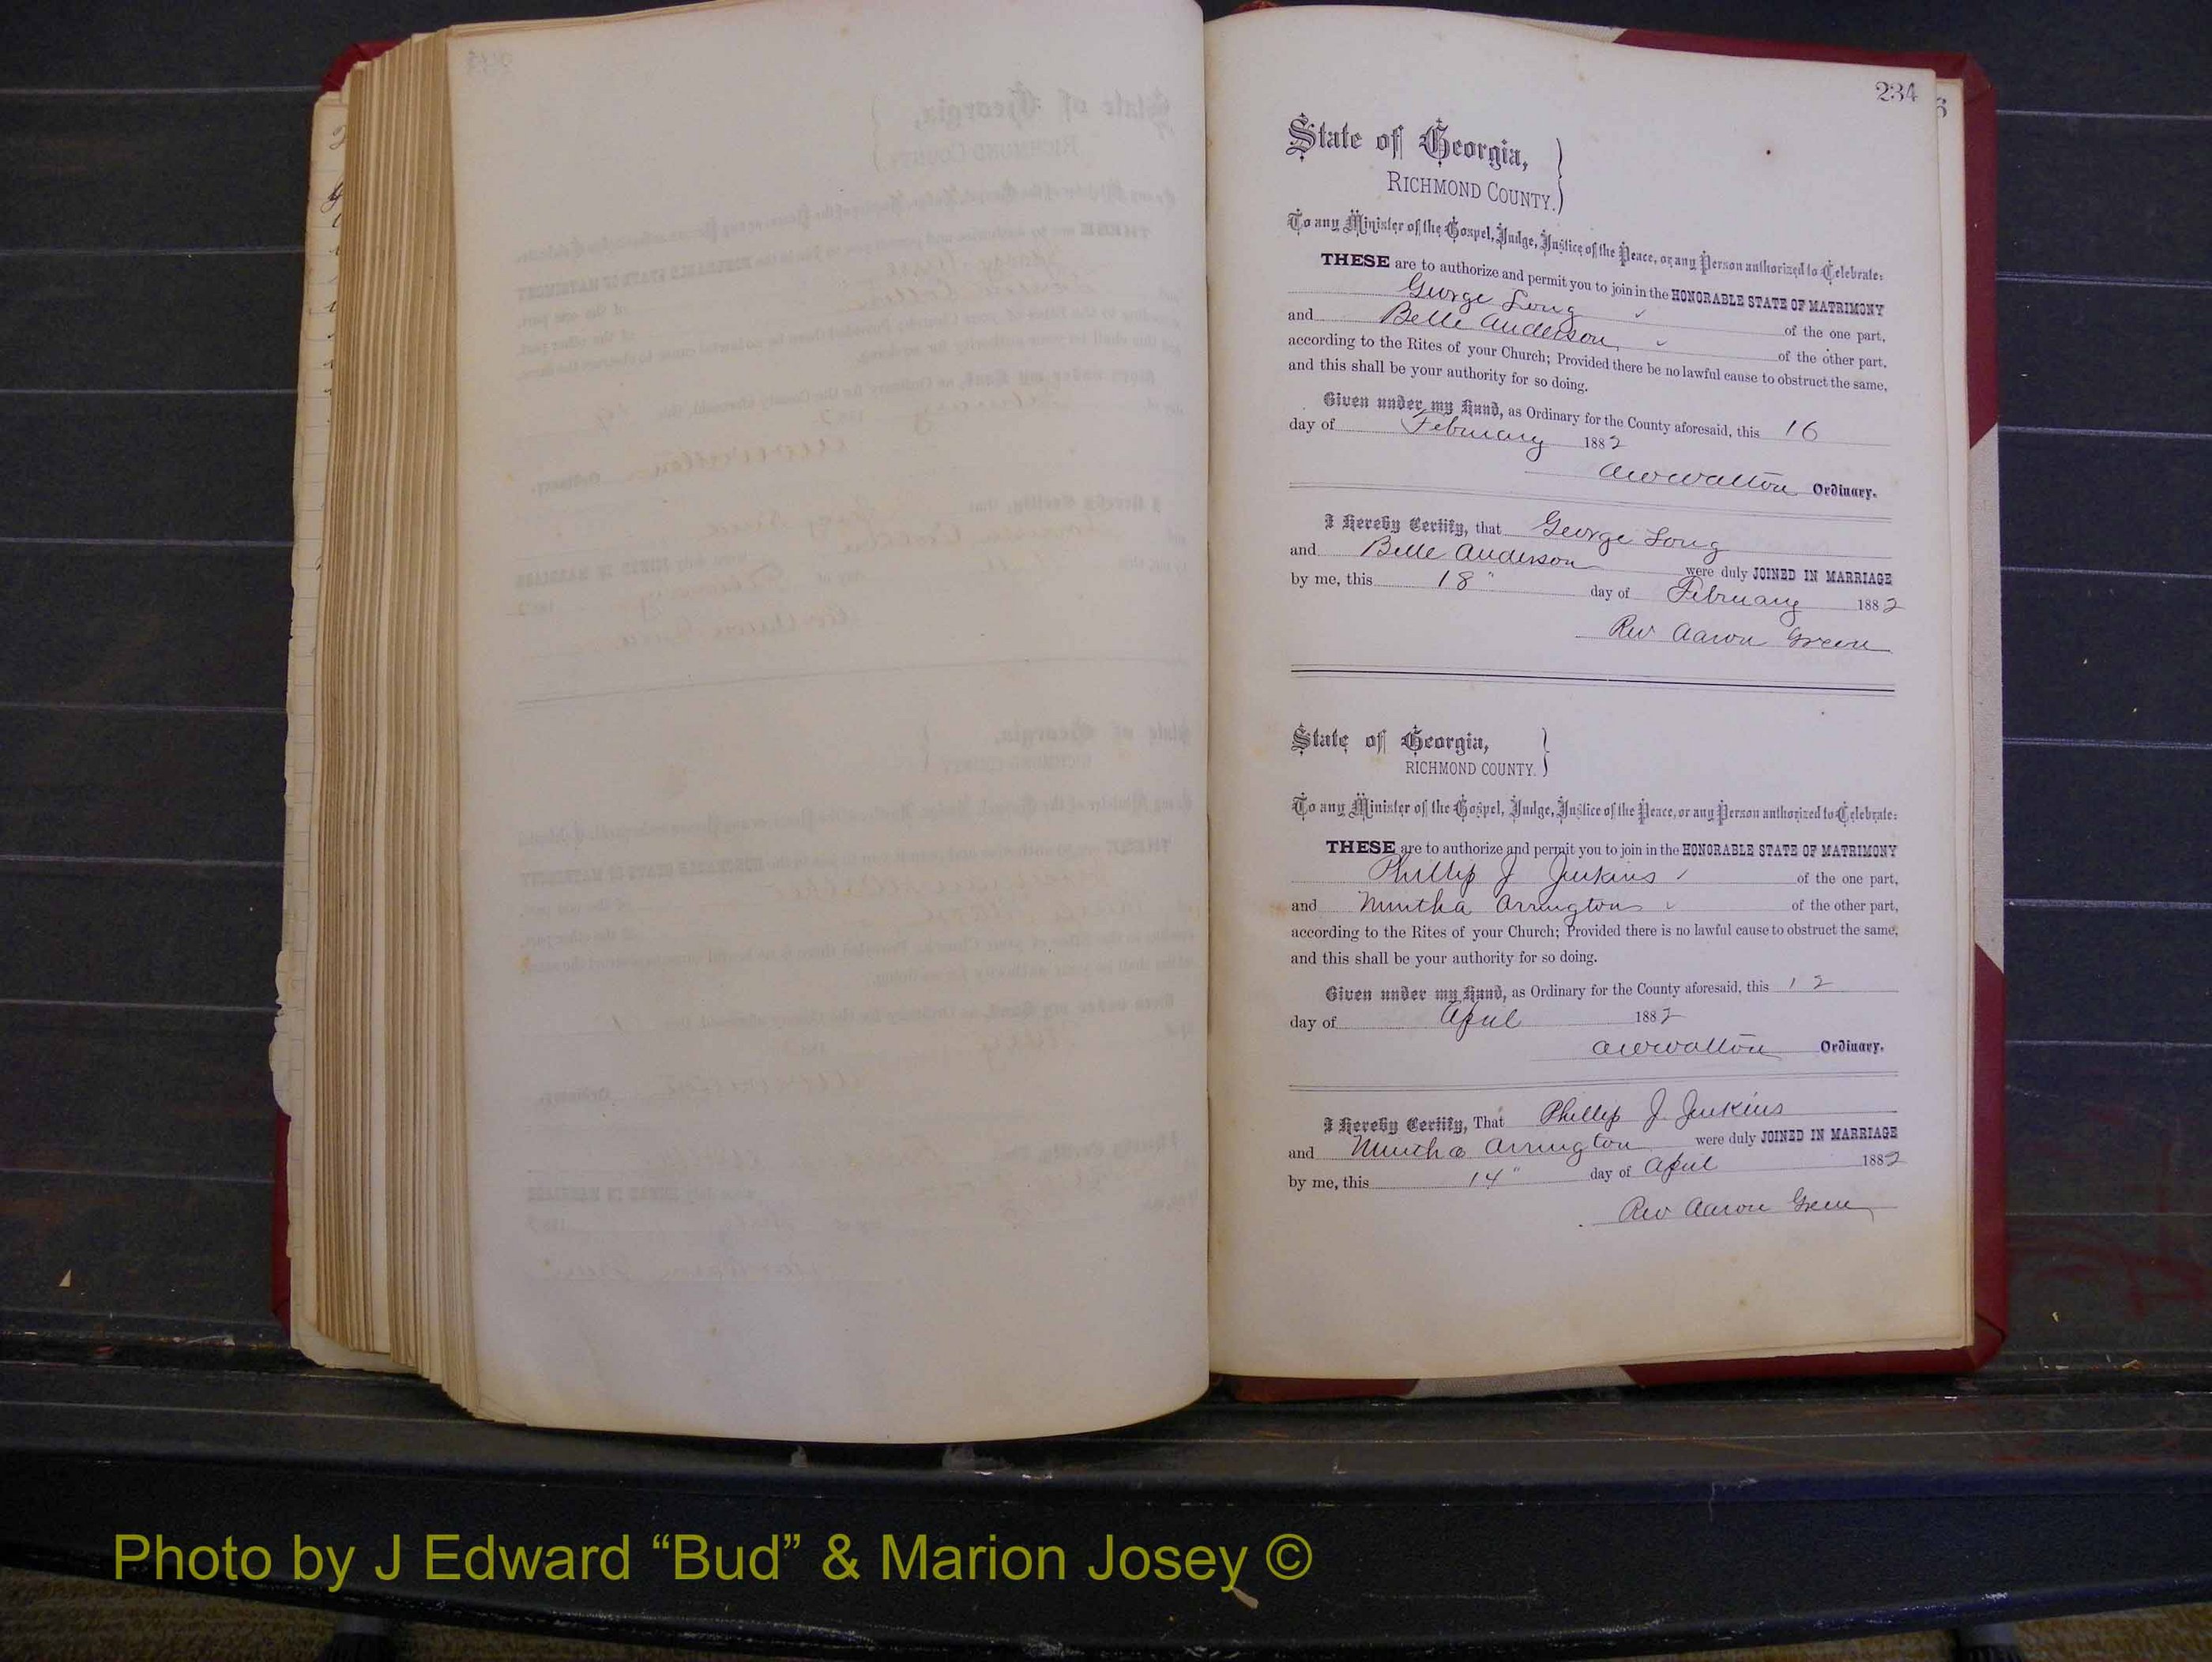 234
State of Georgia,
RICHMOND COUNTY.
To any Minister of the Gospel, Judge, Justice of the Peace, or any Person authorized to Celebrate:
THESE are to authorize and permit you to join in the HONORABLE STATE OF MATRIMONY
George Long of the one part,
and Belle Anderson of the other part,
according to the Rites of your Church; Provided there be no lawful cause to obstruct the same,
and this shall be your authority for so doing.
Given under my Hand, as Ordinary for the County aforesaid, this 16
day of February 1882
AW Walton Ordinary.
I Hereby Certify, that George Long
and Belle Anderson were duly JOINED IN MARRIAGE
by me, this 18" day of February 1882
Rev Aaron Green
State of Georgia,
RICHMOND COUNTY.
To any Minister of the Gospel, Judge, Justice of the Peace, or any Person authorized to Celebrate:
THESE are to authorize and permit you to join in the HONORABLE STATE OF MATRIMONY
Phillip J Jenkins of the one part,
and Arrington of the other part,
according to the Rites of your Church; Provided there is no lawful cause to obstruct the same,
and this shall be your authority for so doing.
Given under my Hand, as Ordinary for the County aforesaid, this 12
day of April 1882
AW Walton Ordinary.
I Hereby Certify, That Phillip J Jenkins
and Arrington were duly JOINED IN MARRIAGE
by me, this 14" day of April 1882
Rev Aaron Green
Photo by J Edward “Bud” & Marion Josey ©